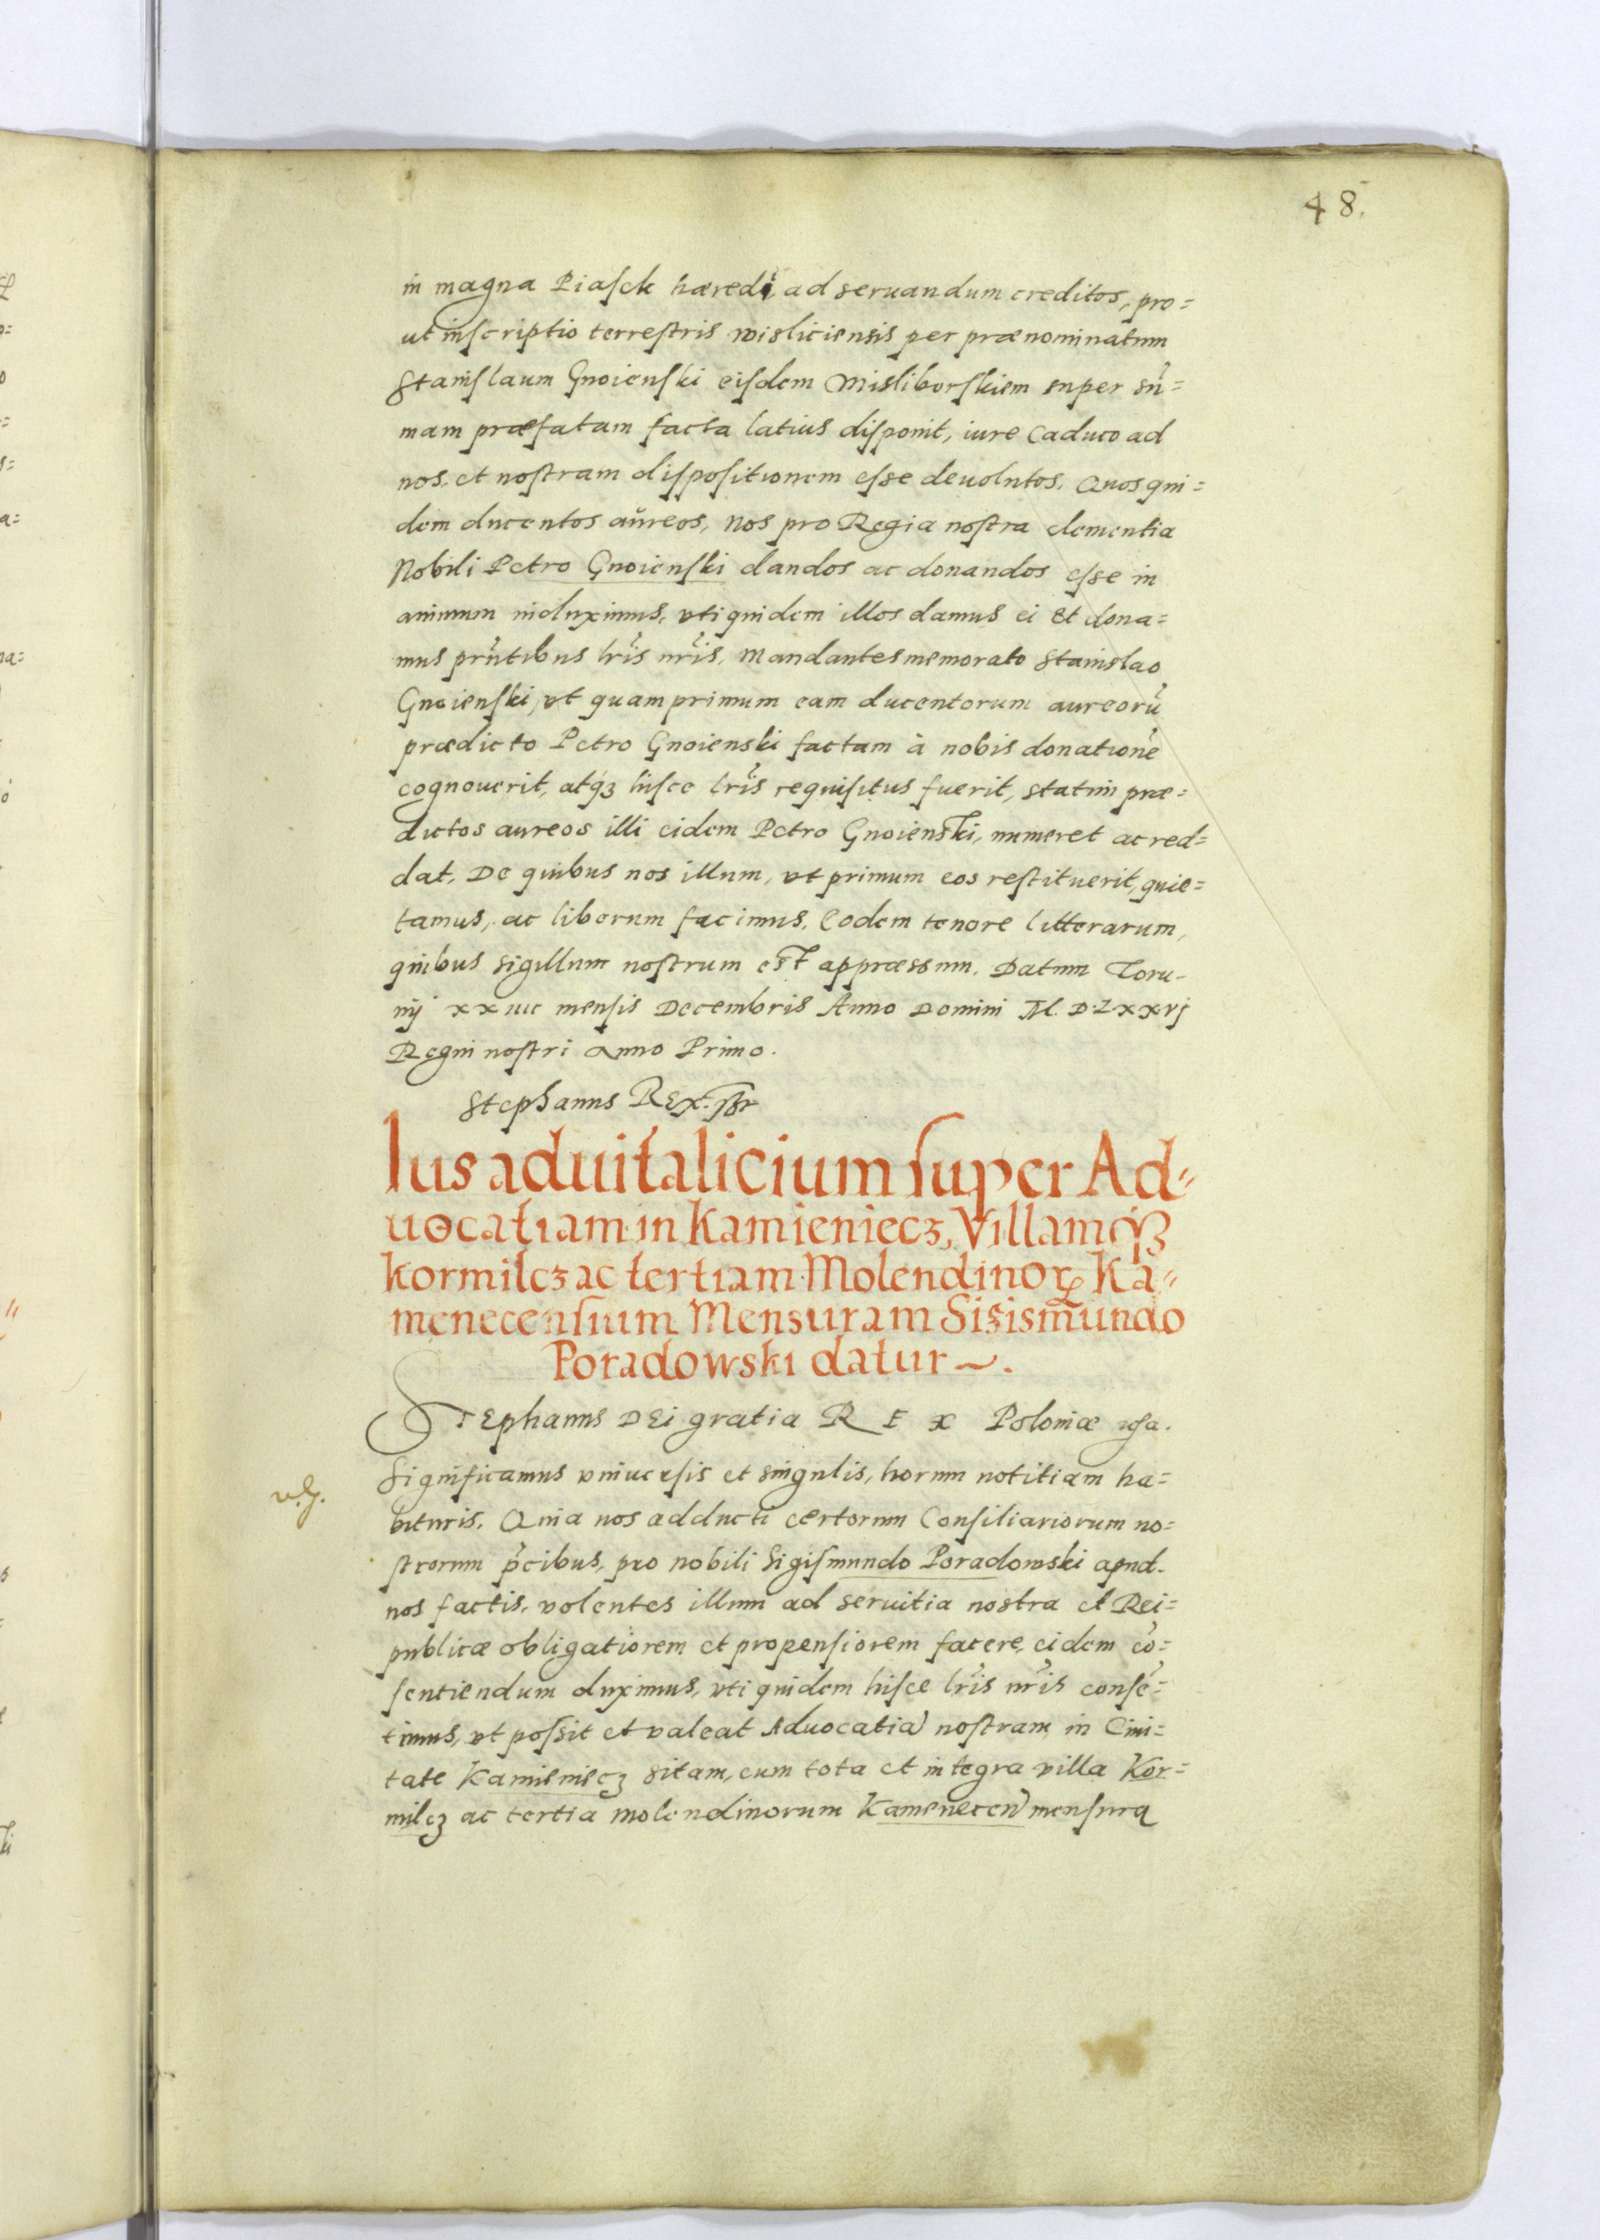 48.
in magna Piasek hæredi ad seruandum creditos, pro=
ut inscriptio terrestris wisliciensis per prænominatum
Stanislaum Gnoienski eisdem Misliborskiem super sũ=
mam præfatam facta latius disponit, iure caduco ad
nos, et nostram dispositionem esse deuolutos. Quos qui=
dem ducentos aureos, nos pro Regia nostra clementia
Nobili Petro Gnoienski dandos ac donandos esse in
animum induximus, vti quidem illos damus ei et dona=
mus prñtibus lr̃is nr̃is. Mandantes memorato Stanislao
Gnoienski, vt quam primum eam ducentorum aureorũ
prædicto Petro Gnoienski factam à nobis donationẽ
cognouerit, atq́ꝫ hisce lr̃is requisitus fuerit, statim præ=
dictos aureos illi eidem Petro Gnoienski, numeret ac red=
dat. De quibus nos illum, vt primum eos restituerit, quie=
tamus, ac liberum facimus. Eodem tenore litterarum,
quibus sigillum nostrum est appræssum. Datum Toru-
nij xx mensis Decembris Anno Domini M. D. Lxxvj
Regni nostri Anno Primo.
Stephanus REX. ssr
Ius aduitalicium super Ad=
uocatiam in Kamieniecz, Villamq́ꝫ
Kormilcz ac tertiam Molendinoꝝ Ka=
menecensium Mensuram Sigismundo
Poradowski datur ~.
STEphanus DEi gratia REX Poloniæ
Significamus vniuersis et singulis, horum notitiam ha=
bituris. Quia nos adducti certorum Consiliariorum no=
strorum p̃cibus, pro nobili Sigismundo Poradowski apud
nos factis, volentes illum ad seruitia nostra et Rei=
publicæ obligatiorem et propensiorem facere, eidem cõ=
sentiendum duximus, vti quidem hisce lr̃is nr̃is consẽ=
timus, vt possit et valeat Aduocatiã nostram in Ciui=
tate Kamieniecz sitam, cum tota et integra villa Kor=
milcz ac tertia molendinorum Kamenecen̄ mensura